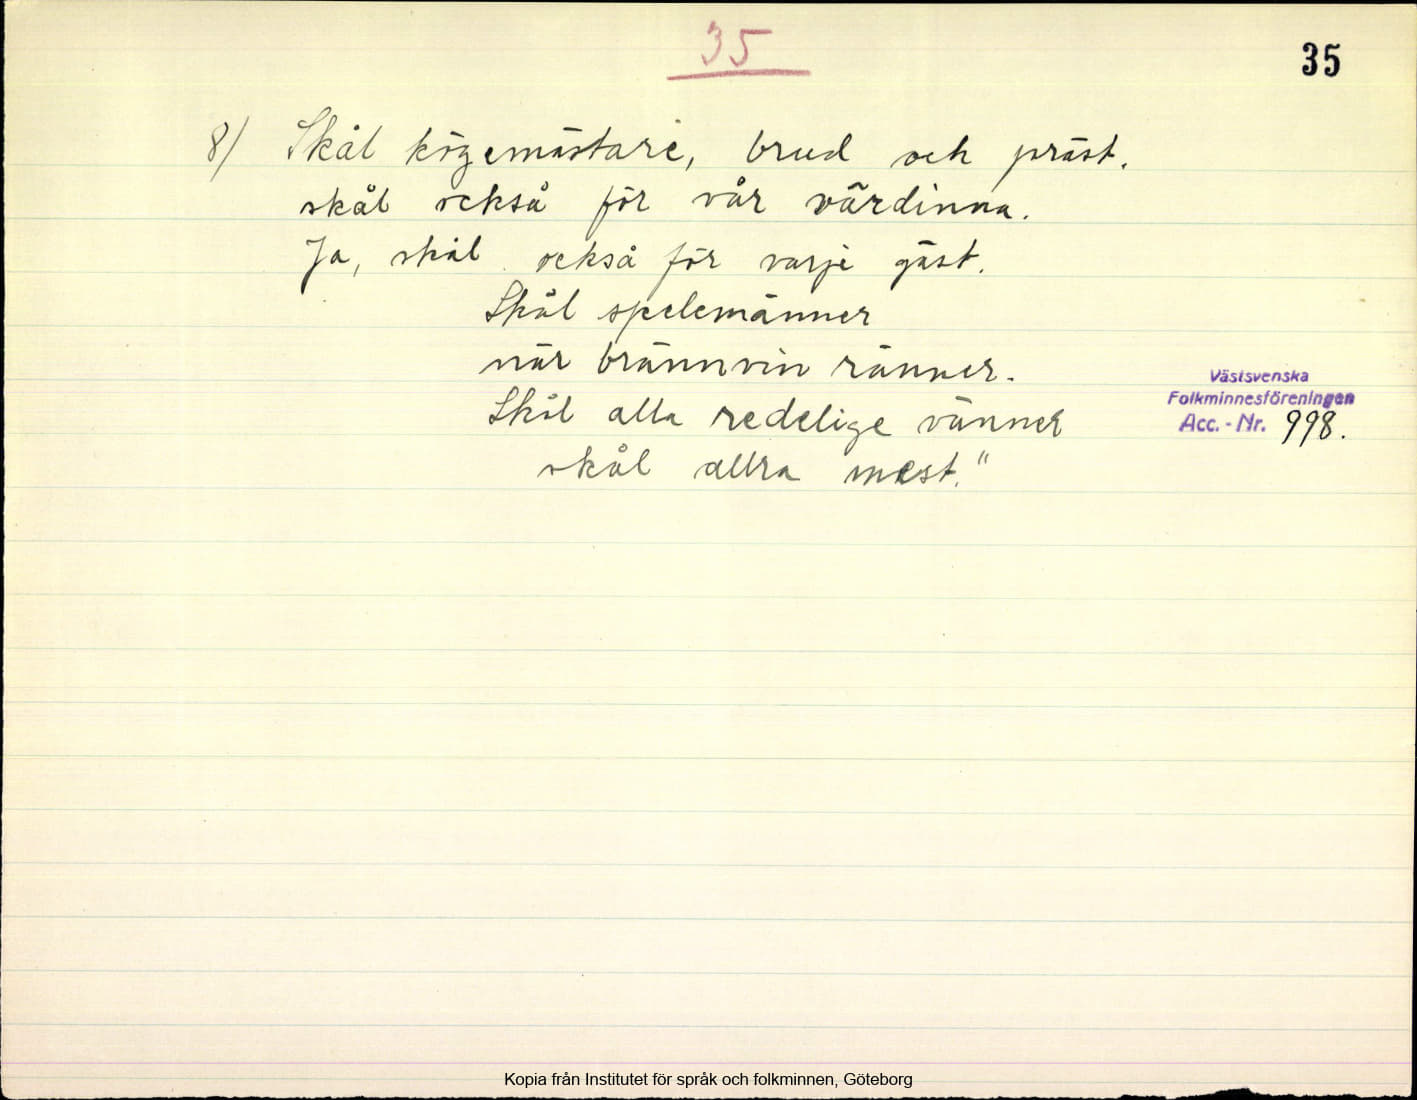 35
35
8/ Skål kögemästare, brud och präst.
skål också för vår värdinna.
Ja, skål också för varje gäst.
Skål spelemänner
när brännvin ränner.
Skål alla redelige vänner
skål allra mest."
Västsvenska
Folkminnesföreningen
Acc. - Nr. 998.
Kopia från Institutet för språk och folkminnen, Göteborg